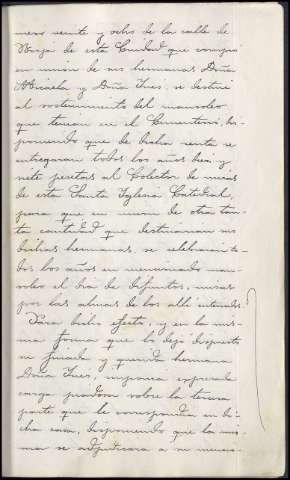 mero veinte y ocho de la calle de
de esta Ciudad que compró
en union de sus hermanas Doña
Micaela y Doña Ines, se destine
al sostenimiento del mausoleo
que tienen en el Cementerio, dis-
poniendo que de dicha renta se
entregaran todos los años cien y
siete pesetas al Colector de misas
de esta Santa Iglesia Catedral,
para que en union de otra tan-
ta cantidad que destinaron sus
dichas hermanas, se celebraran to-
dos los años en mencionado mau-
soleo el dia de difuntos, misas
por las almas de los alli enterrados.
Para dicho efecto, y en la mis-
ma forma que lo dejó dispuesto
su finada y querida hermana
Doña Ines, impone expresada
carga piadosa sobre la tercera
parte que le corresponde en di-
cha casa, disponiendo que la mis-
ma se adjudicara a su